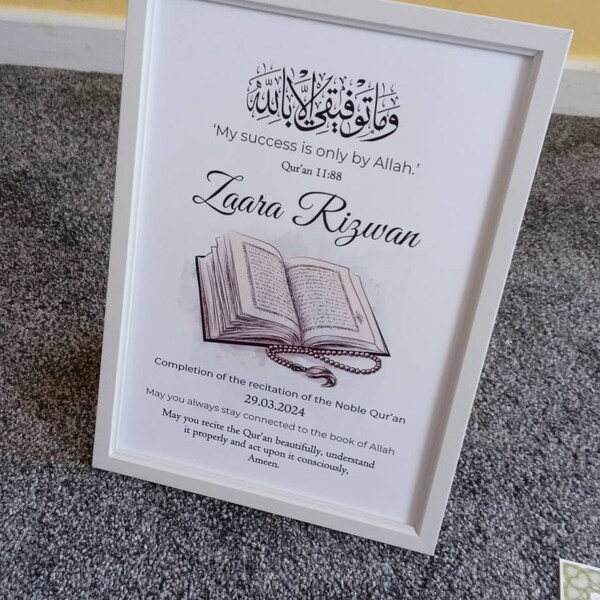 وما توفيقي إلا بالله
‘My success is only by Allah.’
Qur’an 11:88
Zaara Rizwan
Completion of the recitation of the Noble Qur’an
29.03.2024
May you always stay connected to the book of Allah
May you recite the Qur’an beautifully, understand
it properly and act upon it consciously,
Ameen.